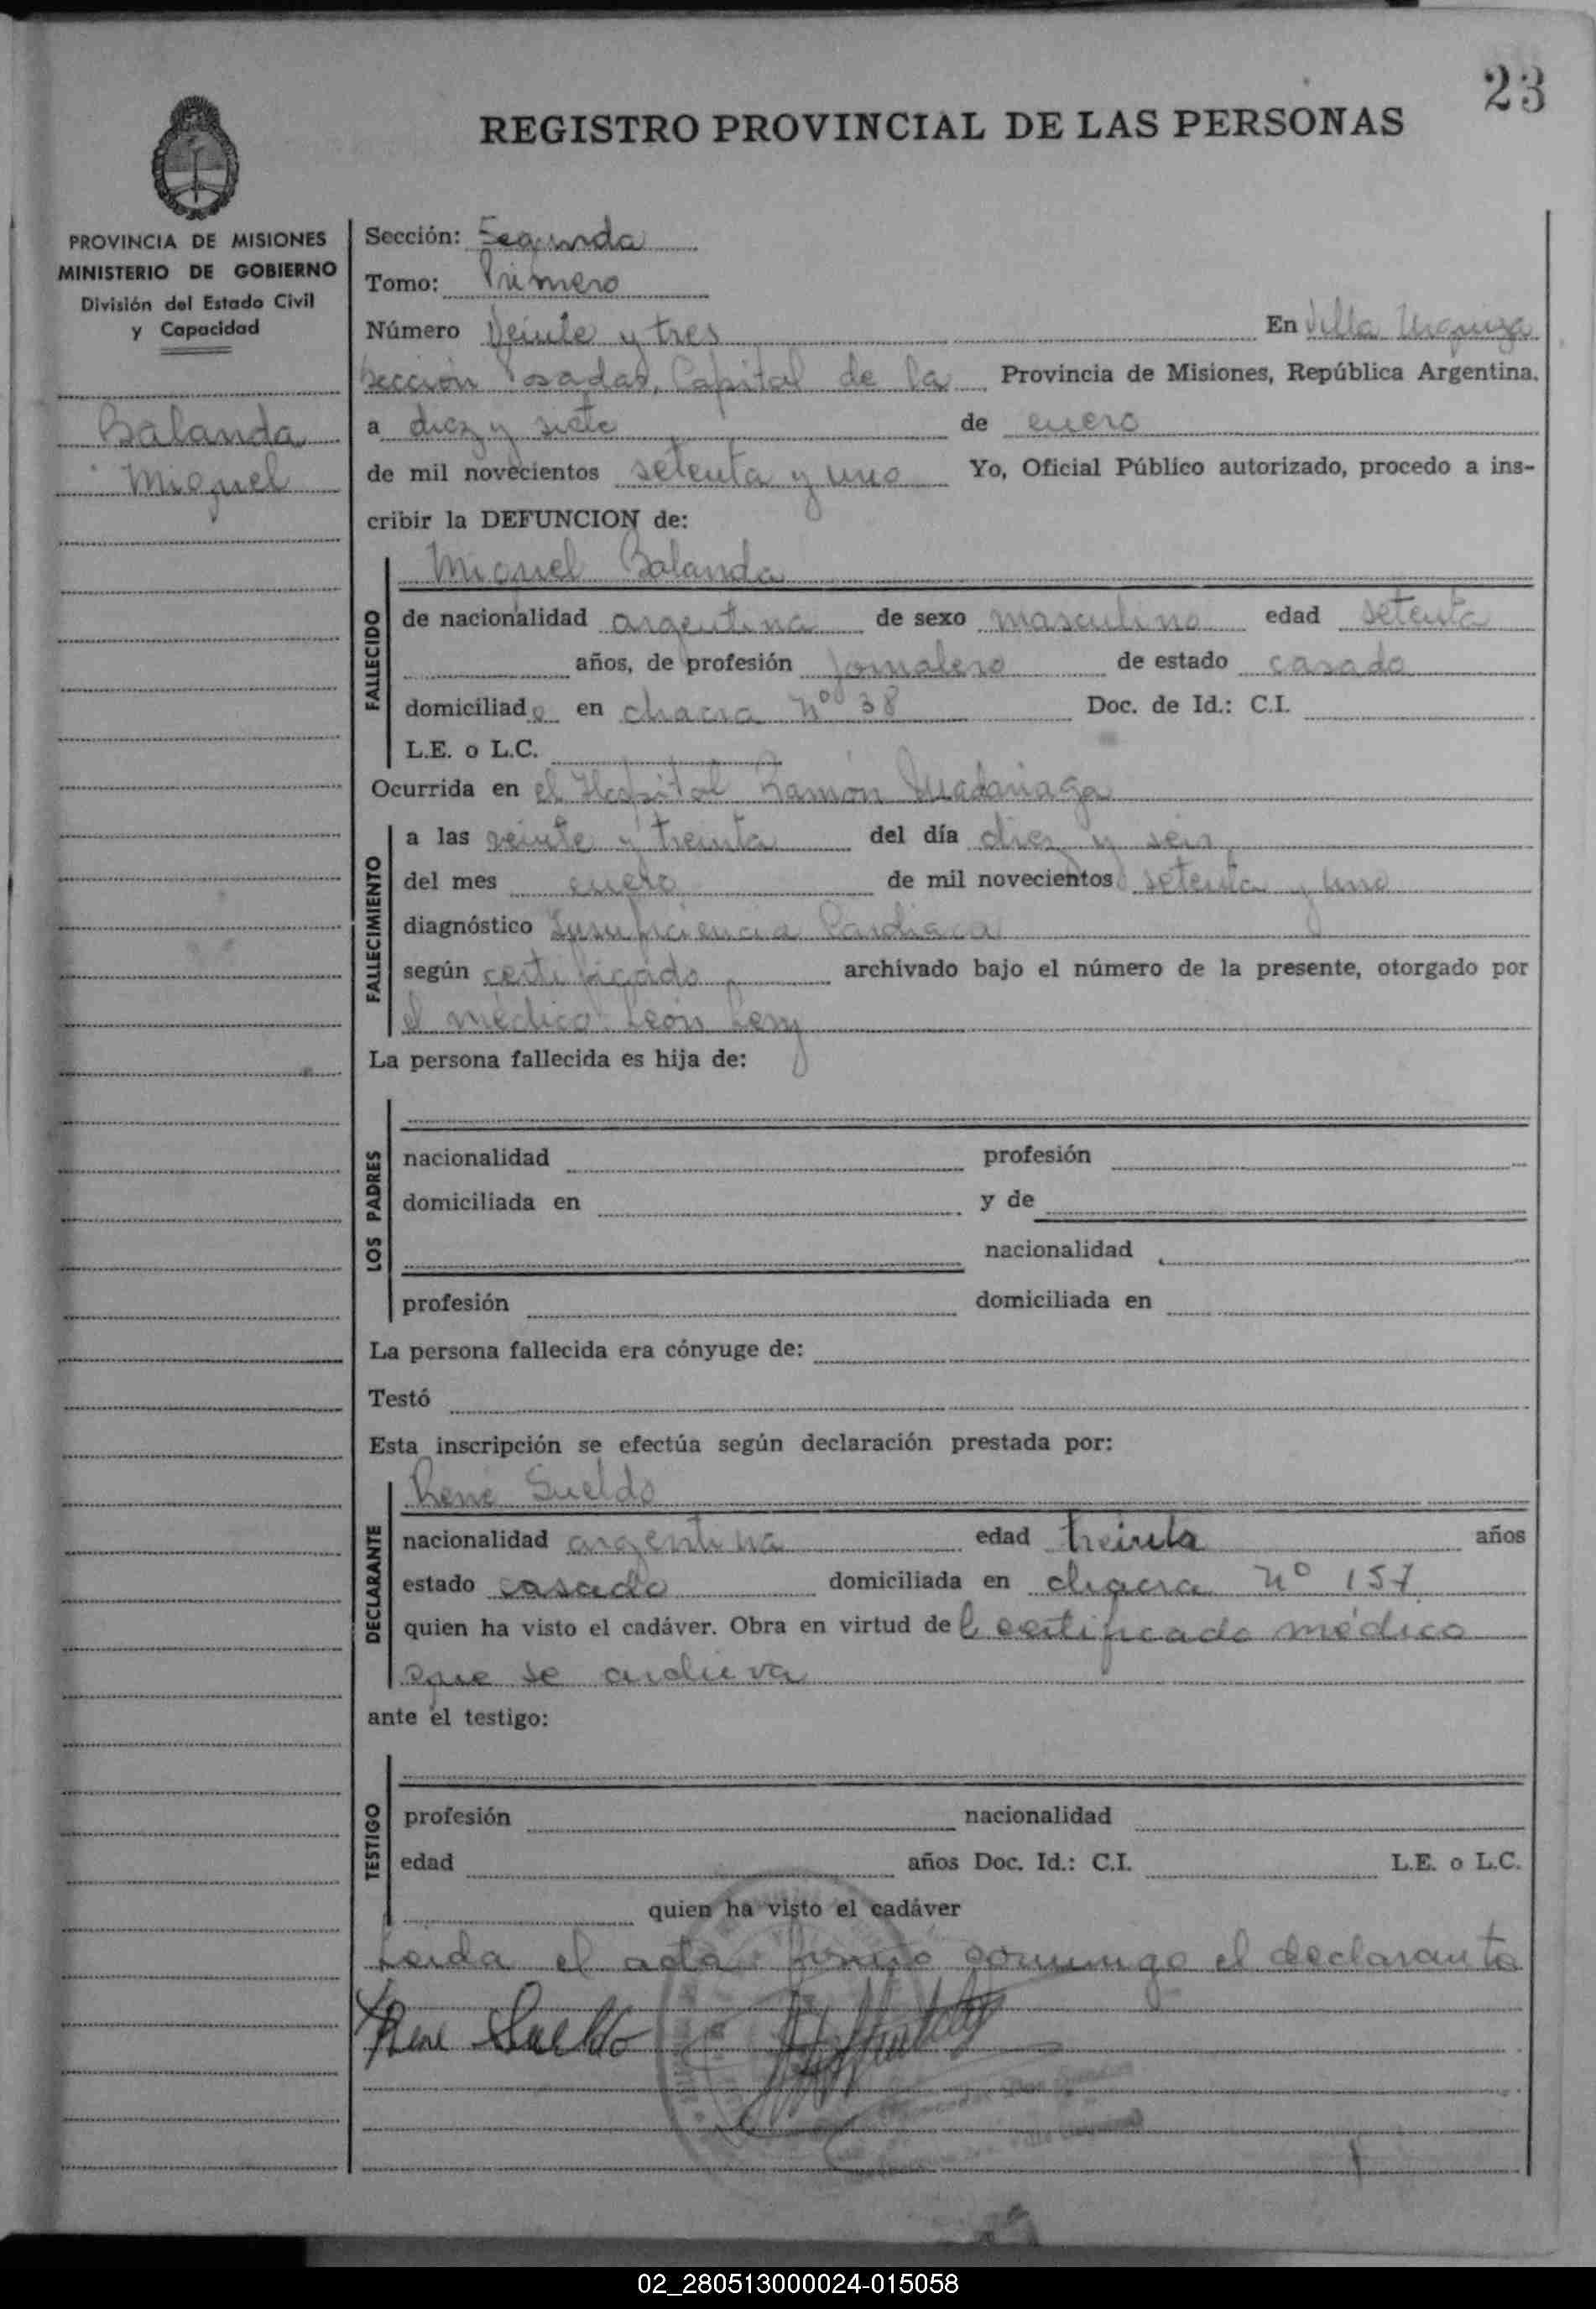 23
REGISTRO PROVINCIAL DE LAS PERSONAS
PROVINCIA DE MISIONES
MINISTERIO DE GOBIERNO
División del Estado Civil
y Capacidad
Balanda
Miguel
Sección: Segunda
Tomo: Primero
Número Veinte y tres En Villa Urquiza
Sección Posadas, Capital de la Provincia de Misiones, República Argentina.
a diez y siete de enero
de mil novecientos setenta y uno Yo, Oficial Público autorizado, procedo a ins-
cribir la DEFUNCION de:
Miguel Balanda
FALLECIDO
de nacionalidad argentina de sexo masculino edad setenta
años, de profesión Jornalero de estado casado
domiciliado en chacra nº 38 Doc. de Id.: C.I.
L.E. o L.C.
Ocurrida en el Hospital Ramón Madariaga
FALLECIMIENTO
a las veinte y treinta del día diez y seis
del mes enero de mil novecientos setenta y uno
diagnóstico Insuficiencia Cardiaca
según certificado archivado bajo el número de la presente, otorgado por
el médico León
La persona fallecida es hija de:
LOS PADRES
nacionalidad profesión
domiciliada en y de
nacionalidad
profesión domiciliada en
La persona fallecida era cónyuge de:
Testó
Esta inscripción se efectúa según declaración prestada por:
René Sueldo
DECLARANTE
nacionalidad argentina edad treinta años
estado casado domiciliada en chacra nº 157
quien ha visto el cadáver. Obra en virtud de certificado médico
que se archiva
ante el testigo:
TESTIGO
profesión nacionalidad
edad años Doc. Id.: C.I. L.E. o L.C.
quien ha visto el cadáver
Leida el acta firmó conmigo el declarante
Rene Sueldo
02_280513000024-015058